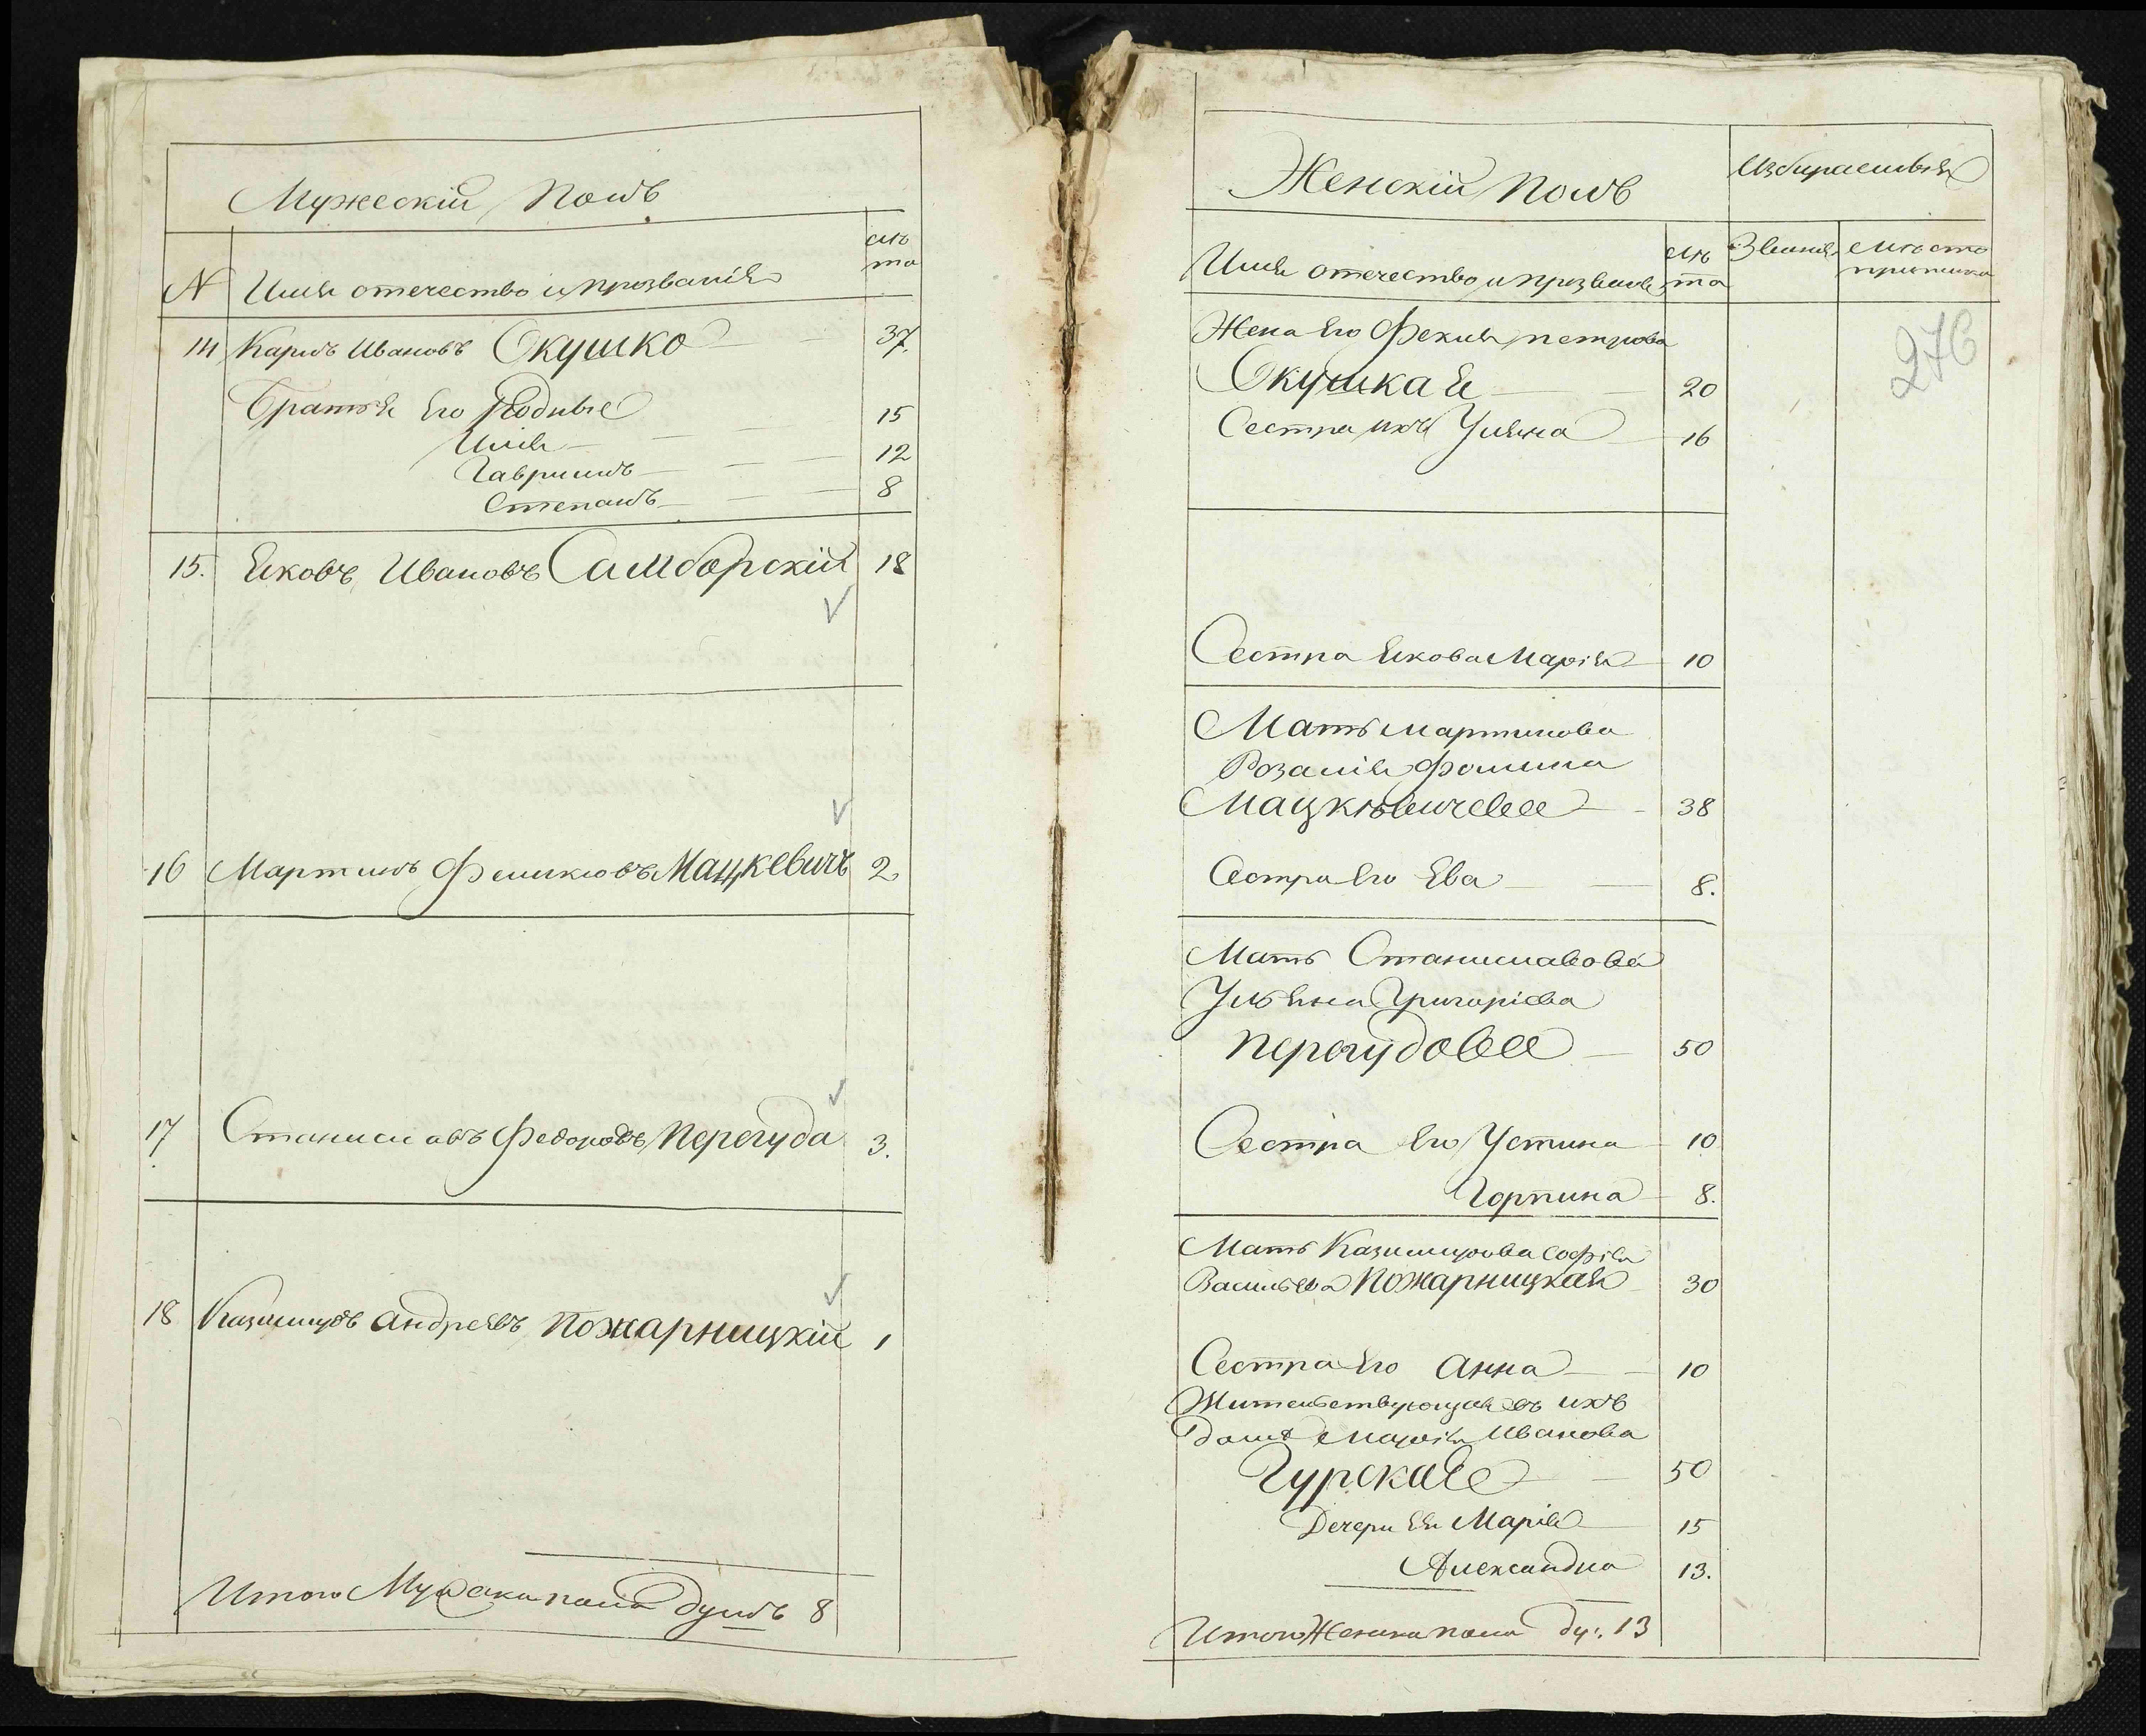 Мужескій Полъ
№ Имя отечество и прозваніе лѣ
та
14 Карлъ Ивановъ Окушко 37.
Братья Его Родные
Илья 15
Гаврилъ 12
Степанъ 8
15. Яковъ Ивановъ Самборскій 18
16 Мартинъ Феликсовъ Мацкевичъ 2
17 Станиславъ Федоровъ Перегуда 3.
18 Казимиръ Андреевъ Пожарницкій 1
Итого Мужеска пола душъ 8
Женскій Полъ
Избираемыя
Имя отечество и прозваніе лѣ
та
Званія Мѣсто
приписки
276
Жена Его Фекля Петрова
Окушкая 20
Сестра ихъ Уляна 16
Сестра Якова Марія 10
Мать Мартинова
Розалія Фомина
Мацкѣвичева 38
Сестра Его Ева 8.
Мать Станиславова
Ульяна Григоріева
Перегудова 50
Сестра Его Устина 10
Горпина 8.
Мать Казимирова Софія
Васильева Пожарницкая 30
Сестра Его Анна 10
Жительствующая въ ихъ
домѣ Марія Иванова
Гурская 50
Дочери Ея Марія 15
Александра 13.
Итого Женска пола ду: 13